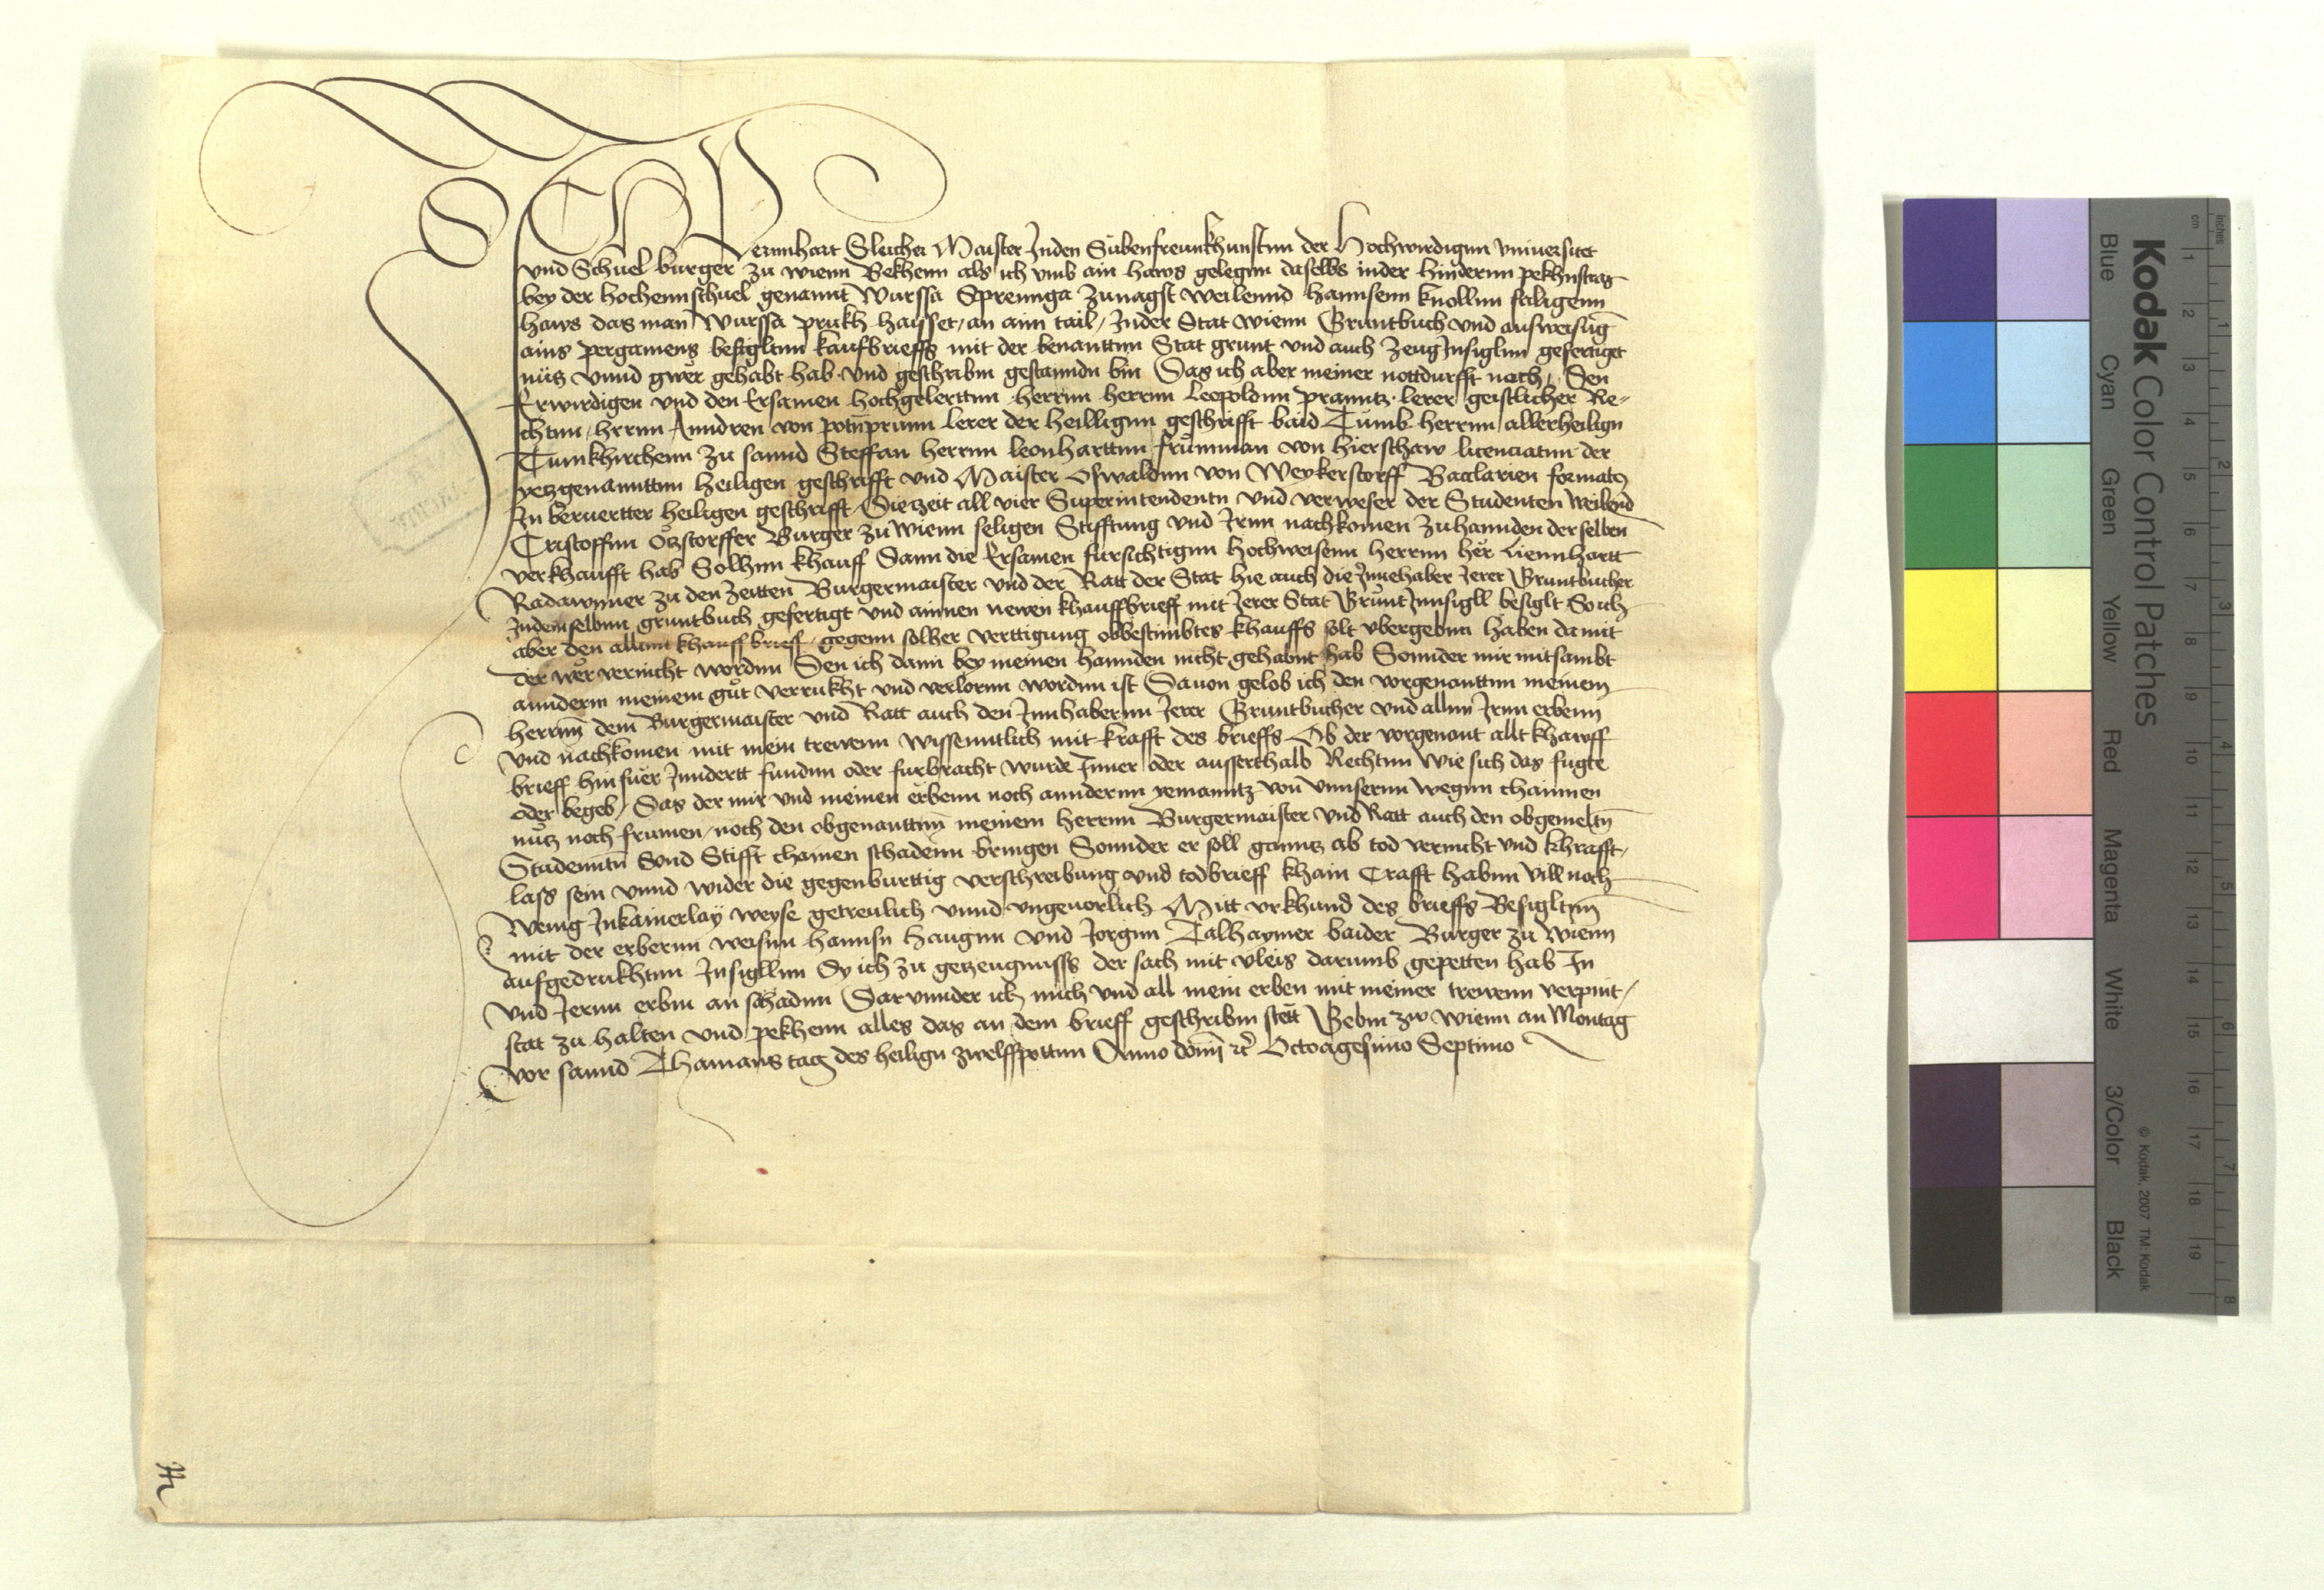 ICH Pernnhart Sleicher Maister Inden Sübenfreunkhunstnn der Hochwirdignn vniuersitet
vnd Schuel burger zu wienn Bekhenn als ich vmb ain haws gelegnn daselbs inder hindernn pekhnstras
bey der hochennschuel genannt Wurssa Sprennga zunagst weilennd hannsenn knollnn saligenn
haws das man Wurssa prukh haysset / an ainn tail / Inder Stat wienn Gruntbuch vnd ausweisug
ains pergamens besigltnn kaufbrieffs mit der benanttnn Stat grunt vnd auch zeug Insiglnn gefertiget
nüs vnnd gwer gehabt hab vnd geschribnn gestanndn bin Das ich aber meiner nottdurfft nach / Den
Erwirdigen vnd den Ersamen hochgelerttnn herrnn herrnn Leopoldnn pranntz lerer geistlicher Re-
chtnn / hrrnn Anndren von potnprunn lerer der heillignn geschrifft baid Tumb herrnn allerheilign
Tumkhirchenn zu sannd Steffan herrnn leonharttnn frumman von hierschaw licenciatnn der
yetzgenannttnn heiligen geschrifft vnd Maister Oswaldnn von Weykerstorff Bacclarien formatn
In beruertter heiligen geschrifft / Diezeit all vier Superintendentn vnd verweser der Studenten weilend
Cristoffnn Ötzstorffer Burger zu wienn seligen Stifftung vnd Irnn nachkomen zuhannden derselben
verkhaufft hab Solhnn khauff Dann die Ersamen fursichtignn hochweisenn herrnn her Liennhartt
Radawnner zu den zeitten Burgermaister vnd der Ratt der Stat hie auch die Innehaber Ierer Gruntbucher
Indemselbnn gruntbuch gefertigt vnd ainnen newen khauffbrieff mit Ierer Stat Grunt Innsigll besiglt So ich
aber den alltnn khauff brieff / gegenn solher verttigung obbestimbtes khauffs solt vbergebnn haben damit
der wer vernicht wordnn Den ich dann bey meinen hannden nicht gehabnt hab Sonnder mir mitsambt
anndernn meinem guet verrukht vnd verlornn wordnn ist Dauon gelob ich den vorgenanttnn meinem
herrnn dem Burgermaister vnd Ratt auch den Innhabernn Ierer Gruntbucher vnd allnn Irnn erbenn
vnd nachkomen mit mein trewenn wissenntlich mit krafft des brieffs Ob der vorgenant allt khawff
brieff hinfuer Inndertt fundnn oder furbracht wurde Inner oder ausserthalb Rechtnn wie sich das fugte
oder begeb / Das der mir vnd meinen erbenn noch anndernn yemanntz von vnnsernn wegnn chainnen
nutz noch frumen / noch den obgenanttnn meinem herrnn Burgermaister vnd Ratt auch den obgemeltn
Studenntn Sond Stifft chainen schadenn bringen Sonnder er soll ganntz ab tod vernicht vnd khrafft /
lass sein vnnd wider die gegenburttig verschreibung vnd todbrieff khain Crafft habnn vill noch
wenig Inkainerlay weyse getreulich vnnd vngeuorlich Mitt vrkhund des brieffs Besigltnn
mit der erbernn weisnn hannsn haugnn vnd Jorgnn Talhaymer baider Burger zu wienn
aufgedrukhtnn Insigllnn Dy ich zu getzeugnuss der sach mit vleis darumb gepetten hab In
vnd Iernn erbnn an schadnn Darvnnder ich mich vnd all mein erben mit meiner trewenn verpint /
stat zu halten vnd pekhenn alles das an dem brieff geschribnn stett Gebnn zw wienn an Montag
vor sannd Thamans tag des heilign zwelffpottnn Anno domini etc Octoagesimo Septimo
Kodak Color Control Patches
Blue Cyan Green Yellow Red Magenta White 3/Color Black
© Kodak, 2007 TM: Kodak
cm 1 2 3 4 5 6 7 8 9 10 11 12 13 14 15 16 17 18 19
inches 1 2 3 4 5 6 7 8